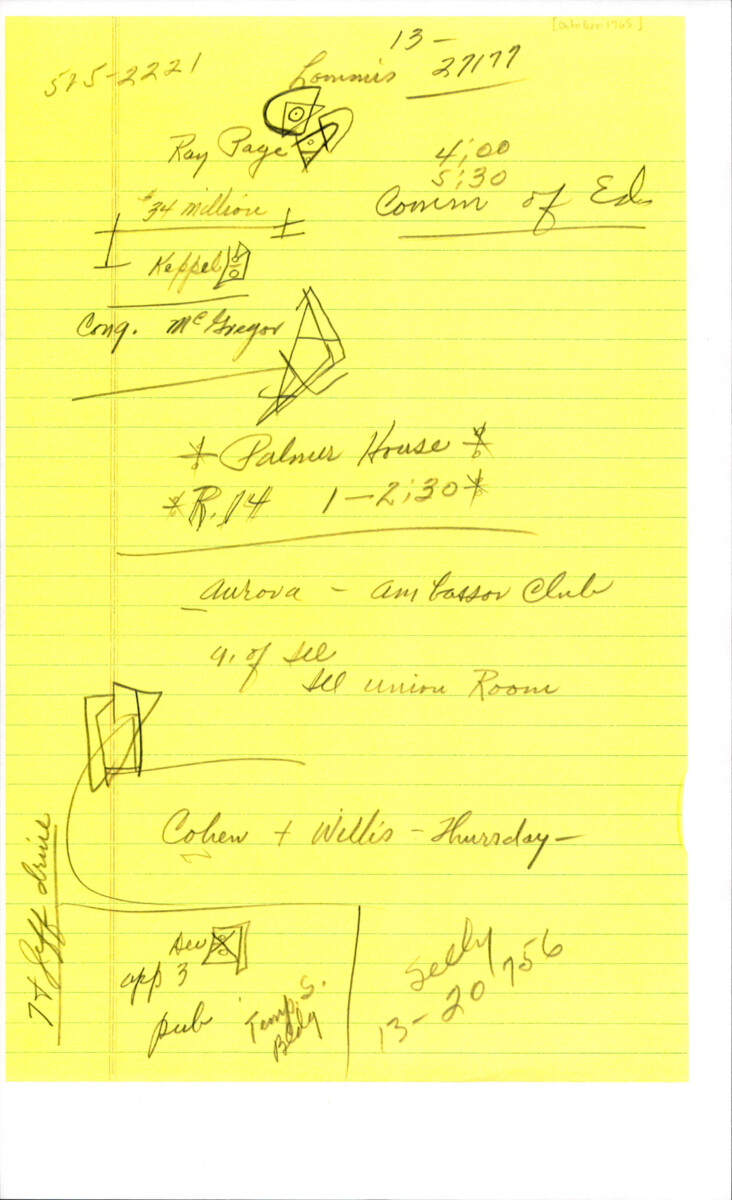 [October 1965]
13-
525-2221
Lommis 27177
Ray Page
4:00
5:30
$34 million
Comm of Ed.
Keppel
Cong. McGregor
Palmer House
R. 14 1-2:30
Aurora - Ambassor Club
U. of Ill
Ill Union Room
Cohen + Willis - Thursday -
7th Jeff drive
app 3
pub
Temp. S.
Bldg
Seely
13-20756